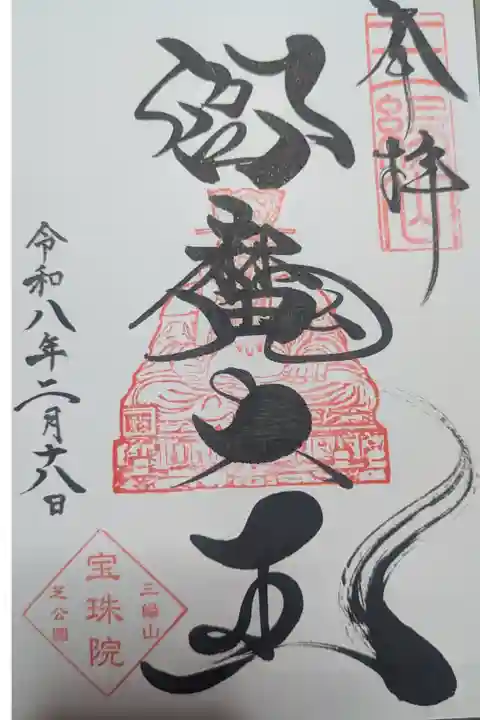 奉拝
閻魔大王
令和八年二月十八日
三縁山
宝珠院
芝公園